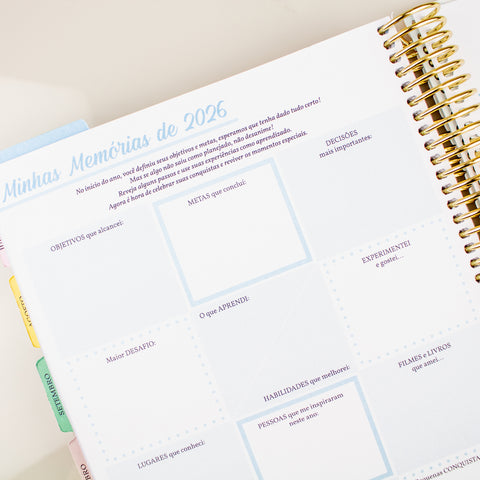 Minhas Memórias de 2026
No início do ano, você definiu seus objetivos e metas, esperamos que tenha dado tudo certo!
Mas se algo não saiu como planejado, não desanime!
Reveja alguns passos e use suas experiências como aprendizado.
Agora é hora de celebrar suas conquistas e reviver os momentos especiais.
OBJETIVOS que alcancei:
METAS que concluí:
DECISÕES
mais importantes:
Maior DESAFIO:
O que APRENDI:
EXPERIMENTEI
e gostei...
HABILIDADES que melhorei:
LUGARES que conheci:
PESSOAS que me inspiraram
neste ano:
FILMES e LIVROS
que amei...
AGOSTO
SETEMBRO